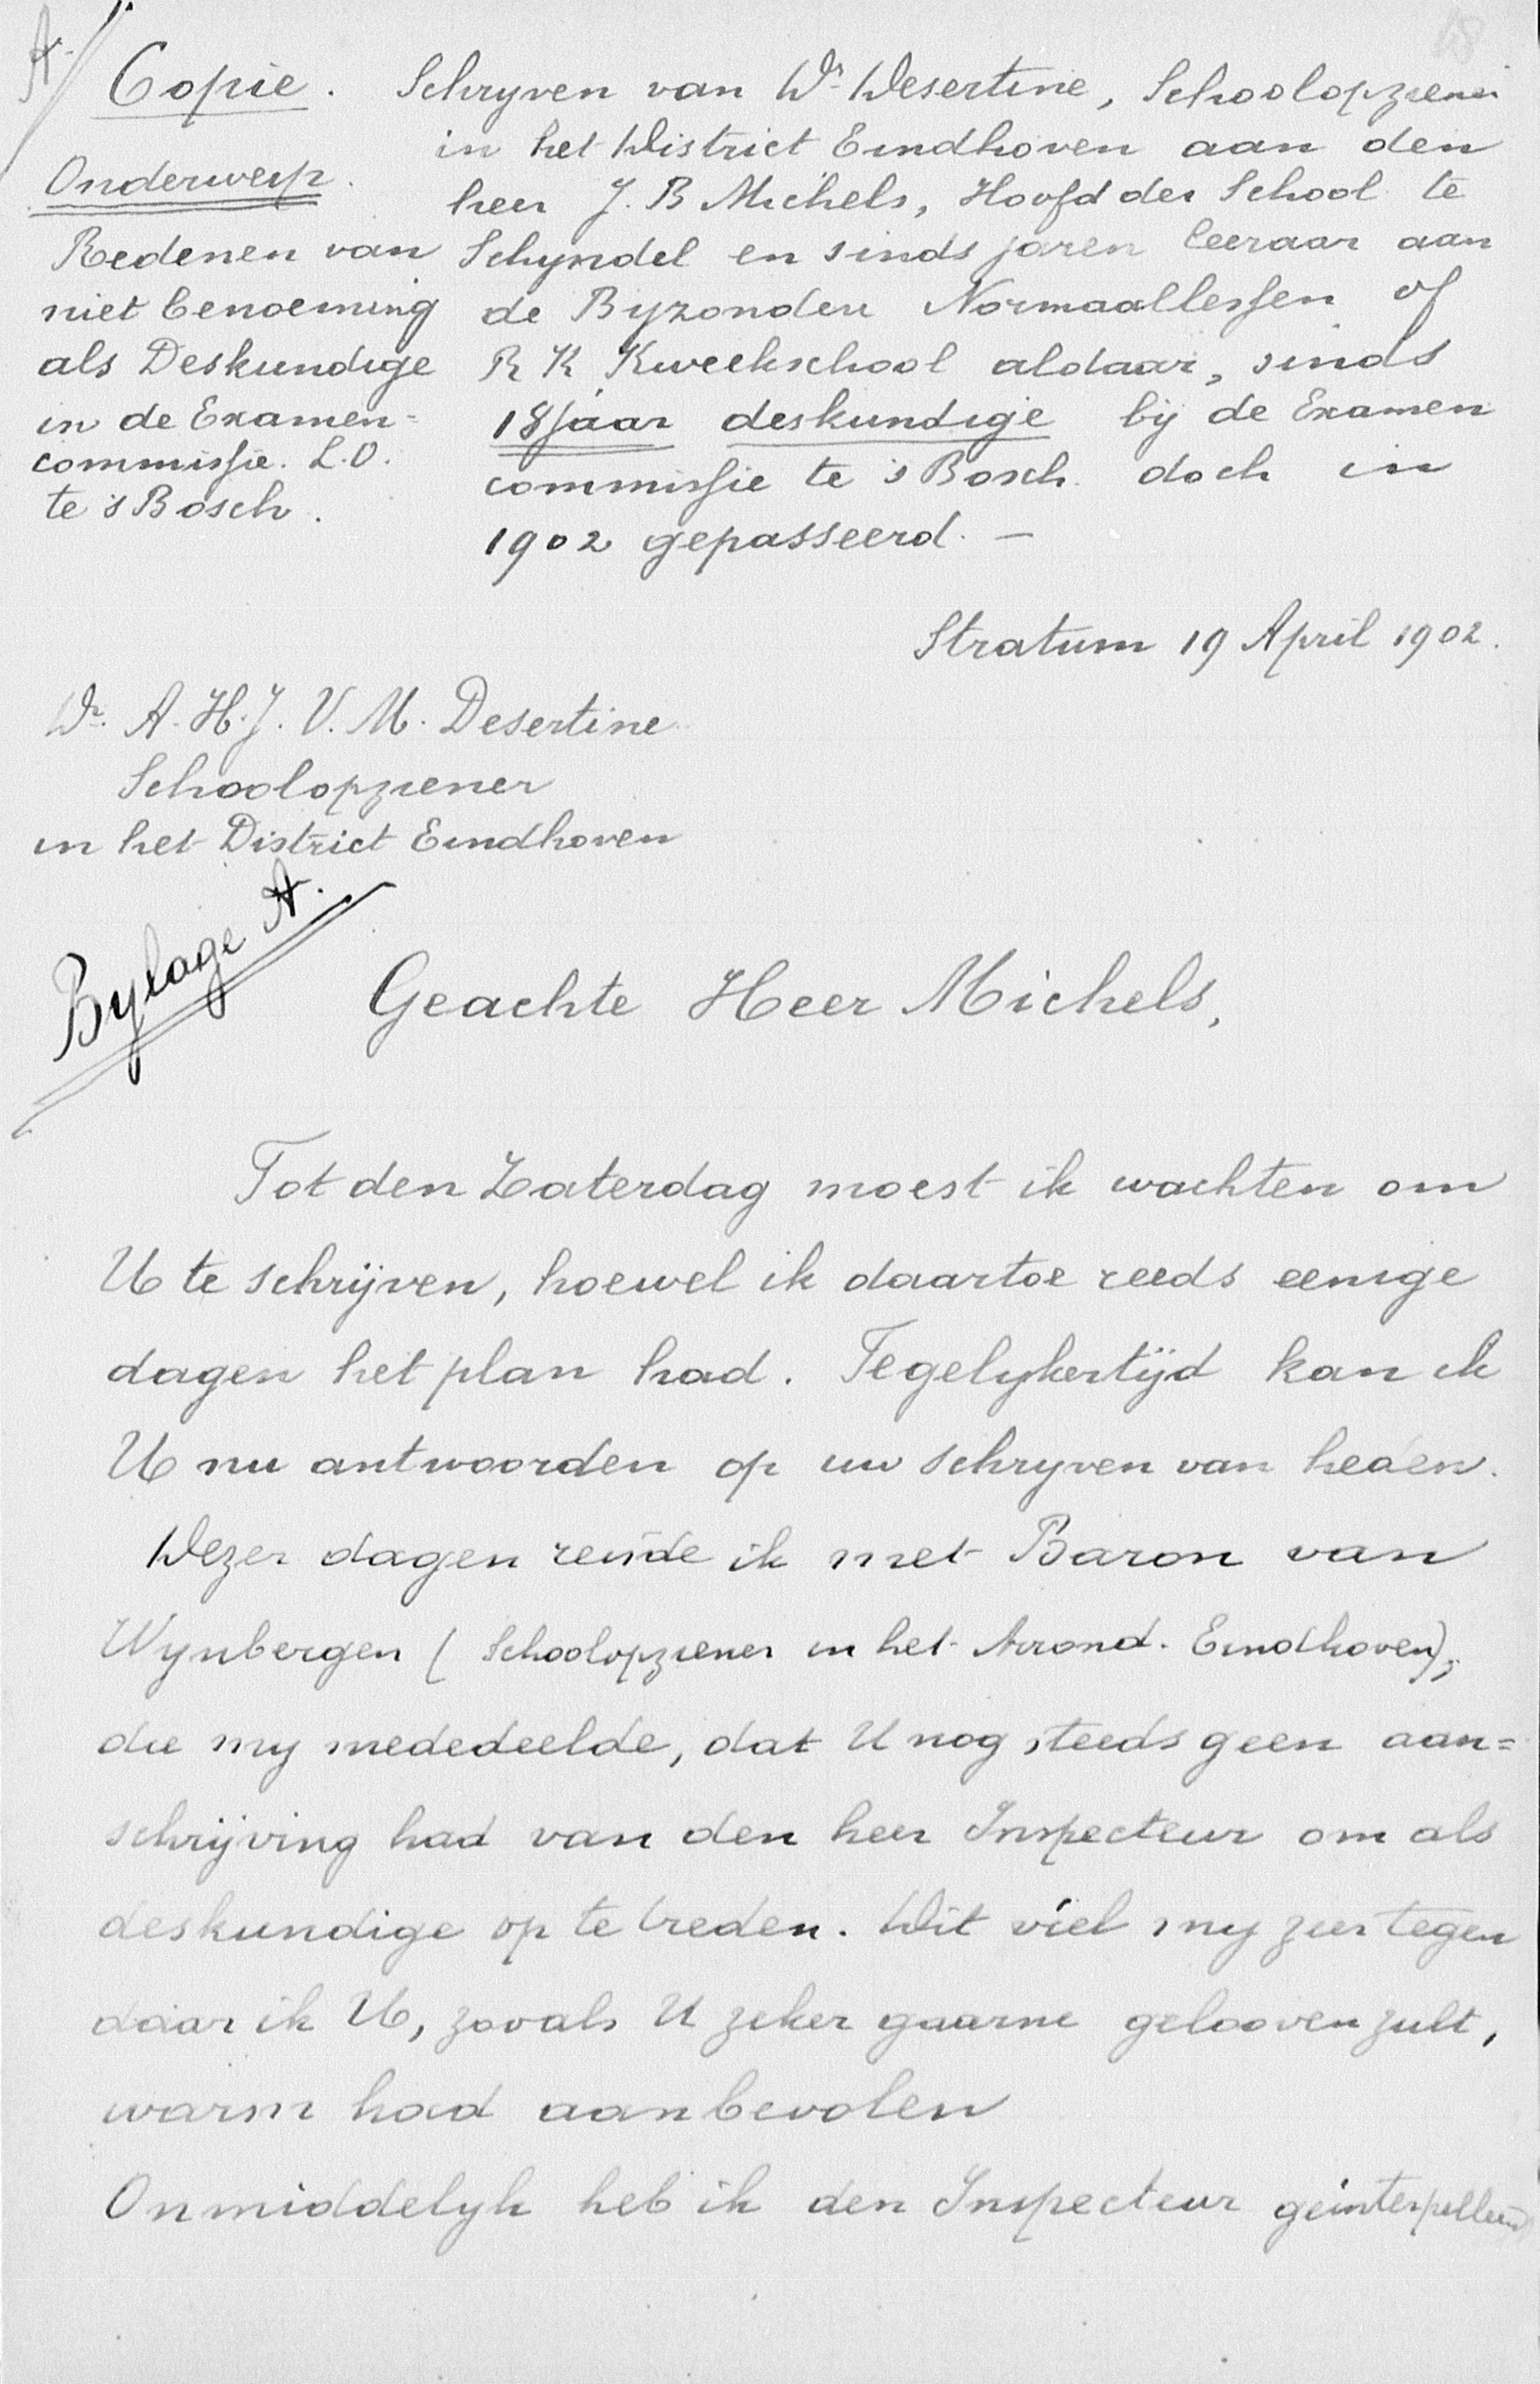 A.
Copie.
Schryven van Dr Desertine, Schoolopziener
in het District Eindhoven aan den
heer J. B Michels, Hoofd der School te
Schyndel en sinds jaren leeraar aan
de Byzondere Normaallessen of
R K Kweekschool aldaar, sinds
18 jaar deskundige bij de Examen
commissie te 's Bosch doch in
1902 gepasseerd. —
Onderwerp.
Redenen van
niet benoeming
als Deskundige
in de Examen=
commissie. L.O.
te 's Bosch.
Stratum 19 April 1902.
Dr. A. H. J. V. M. Desertine
Schoolopziener
in het District Eindhoven
Bylage A.
Geachte Heer Michels,
Tot den Zaterdag moest ik wachten om
U te schrijven, hoewel ik daartoe reeds eenige
dagen het plan had. Tegelykertijd kan ik
U nu antwoorden op uw schryven van heden.
Dezer dagen reisde ik met Baron van
Wynbergen (Schoolopziener in het Arrond. Eindhoven),
die my mededeelde, dat U nog steeds geen aan=
schrijving had van den heer Inspecteur om als
deskundige op te treden. Dit viel my zeer tegen
daar ik U, zooals U zeker gaarne gelooven zult,
warm had aanbevolen
Onmiddelyk heb ik den Inspecteur geinterpelleerd